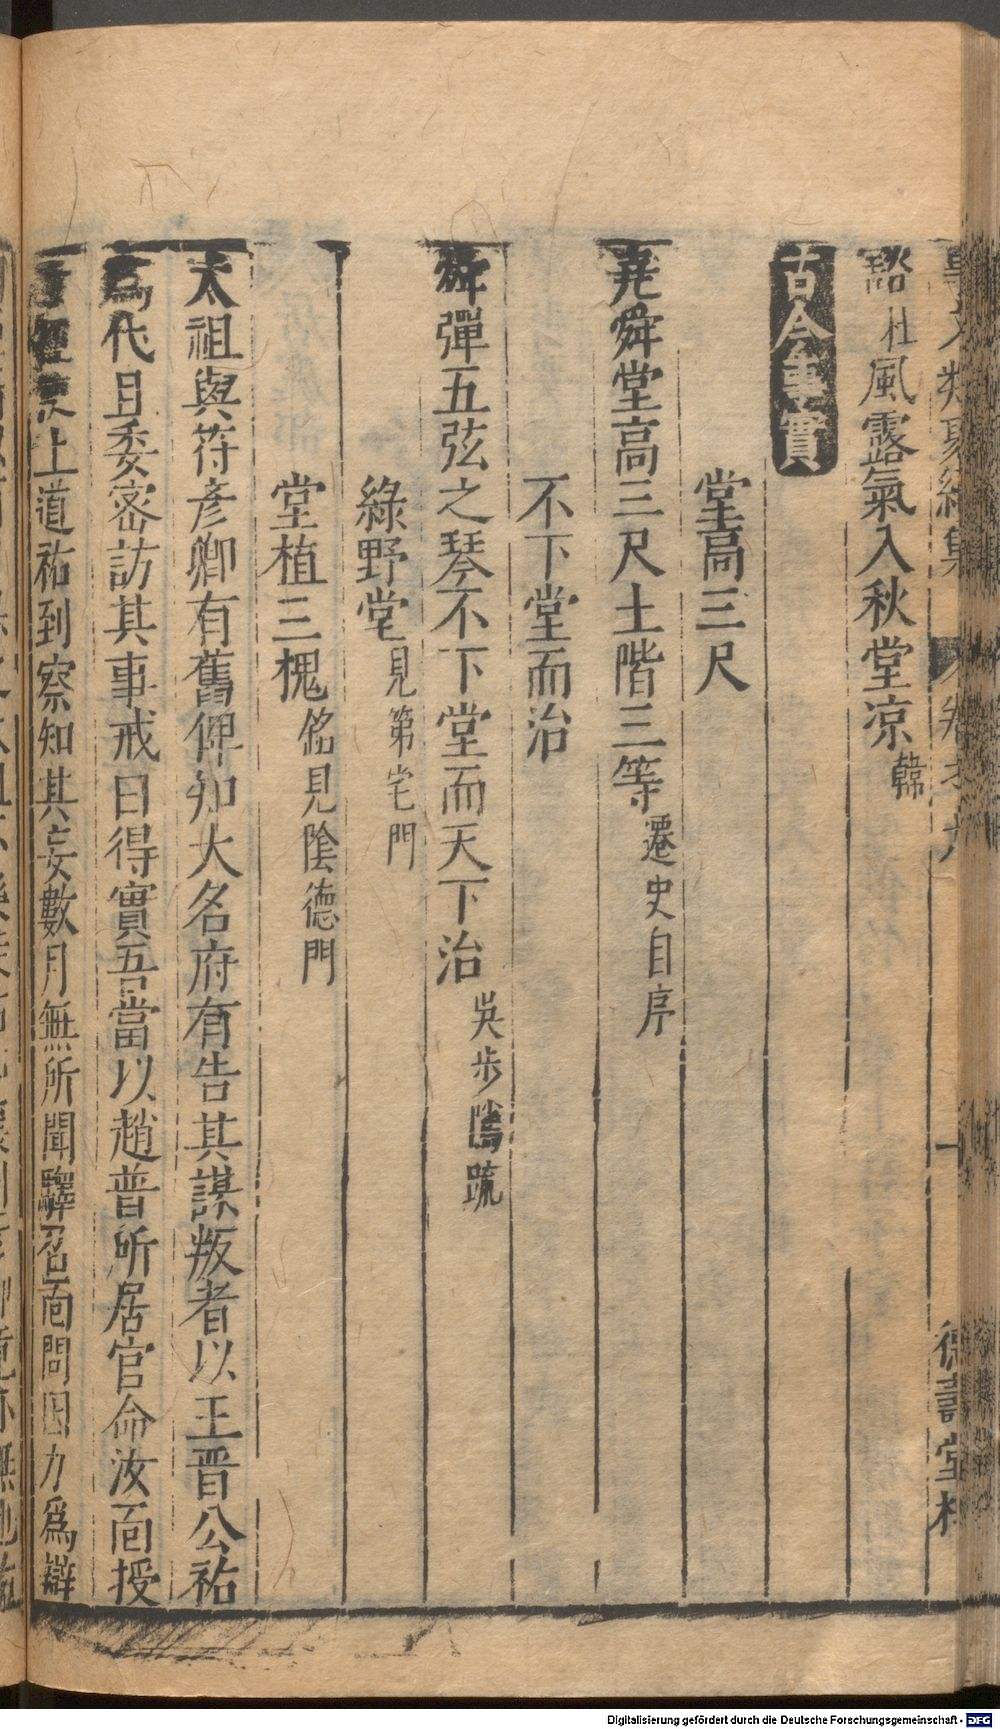 豁杜風露氣入秋堂凉韓
古今事實
堂高三尺
堯舜堂高三尺土階三等遷史自序
不下堂而治
舜彈五弦之琴不下堂而天下治吳步隲疏
綠野堂見第宅門
堂植三槐銘見陰德門
太祖與符彥卿有舊俾知大名府有告其謀叛者以王晉公祐
爲代且委密訪其事戒曰得實吾當以趙普所居官命汝面授
上道祐到察知其妄數月無所聞驛召面問因力爲辯
德壽堂梓
Digitalisierung gefördert durch die Deutsche Forschungsgemeinschaft - DFG